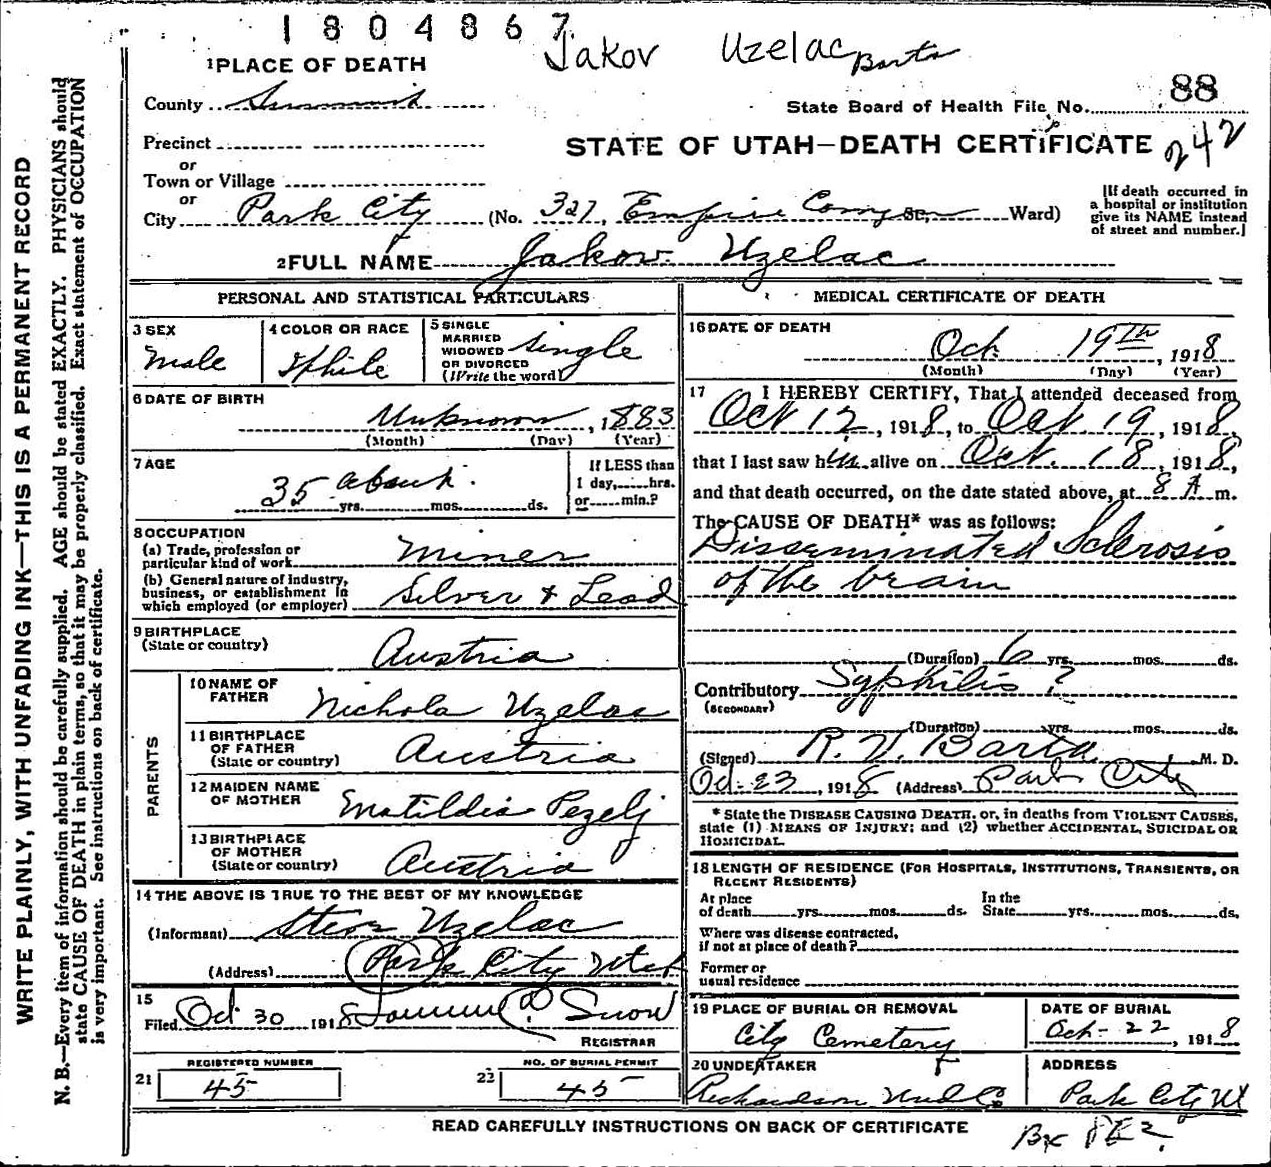 1804867
Jakov Uzelac Barta
1 PLACE OF DEATH
88
County Summit
State Board of Health File No.
Precinct
STATE OF UTAH—DEATH CERTIFICATE
242
or
Town or Village
or
City Park City (No. 327, Empire Canyon St., Ward)
[If death occurred in a hospital or institution give its NAME instead of street and number.]
2 FULL NAME Jakov Uzelac
PERSONAL AND STATISTICAL PARTICULARS
3 SEX
Male
4 COLOR OR RACE
White
5 SINGLE MARRIED WIDOWED OR DIVORCED (Write the word)
Single
6 DATE OF BIRTH
Unknown, 1883
(Month) (Day) (Year)
7 AGE
35 about
yrs. mos. ds.
If LESS than
1 day,.....hrs.
or.....min.?
8 OCCUPATION
(a) Trade, profession or particular kind of work Miner
(b) General nature of industry, business, or establishment in which employed (or employer) Silver & Lead
9 BIRTHPLACE
(State or country) Austria
PARENTS
10 NAME OF FATHER Nichola Uzelac
11 BIRTHPLACE OF FATHER (State or country) Austria
12 MAIDEN NAME OF MOTHER Matildia Pezelj
13 BIRTHPLACE OF MOTHER (State or country) Austria
14 THE ABOVE IS TRUE TO THE BEST OF MY KNOWLEDGE
(Informant) Stev Uzelac
(Address) Park City Utah
15
Filed Oct 30 1918 Snow
REGISTRAR
REGISTERED NUMBER
21 45
NO. OF BURIAL PERMIT
22 45
MEDICAL CERTIFICATE OF DEATH
16 DATE OF DEATH
Oct. 19th, 1918
(Month) (Day) (Year)
17 I HEREBY CERTIFY, That I attended deceased from
Oct 12, 1918, to Oct 19, 1918,
that I last saw him alive on Oct. 18, 1918,
and that death occurred, on the date stated above, at 8 A m.
The CAUSE OF DEATH* was as follows:
Disseminated Sclerosis
of the brain
(Duration) 6 yrs. mos. ds.
Contributory Syphilis ?
(SECONDARY)
(Duration) yrs. mos. ds.
(Signed) R. V. Barta M. D.
Oct-23, 1918 (Address) Park City
* State the DISEASE CAUSING DEATH, or, in deaths from VIOLENT CAUSES, state (1) MEANS OF INJURY; and (2) whether ACCIDENTAL, SUICIDAL OR HOMICIDAL.
18 LENGTH OF RESIDENCE (FOR HOSPITALS, INSTITUTIONS, TRANSIENTS, OR RECENT RESIDENTS)
At place of death yrs. mos. ds. In the State yrs. mos. ds.
Where was disease contracted, if not at place of death?
Former or usual residence
19 PLACE OF BURIAL OR REMOVAL
City Cemetery
DATE OF BURIAL
Oct-22, 1918
20 UNDERTAKER
Richardson Und Co
ADDRESS
Park City Ut
READ CAREFULLY INSTRUCTIONS ON BACK OF CERTIFICATE
WRITE PLAINLY, WITH UNFADING INK—THIS IS A PERMANENT RECORD
N. B.—Every item of information should be carefully supplied. AGE should be stated EXACTLY. PHYSICIANS should
state CAUSE OF DEATH in plain terms, so that it may be properly classified. Exact statement of OCCUPATION
is very important. See instructions on back of certificate.